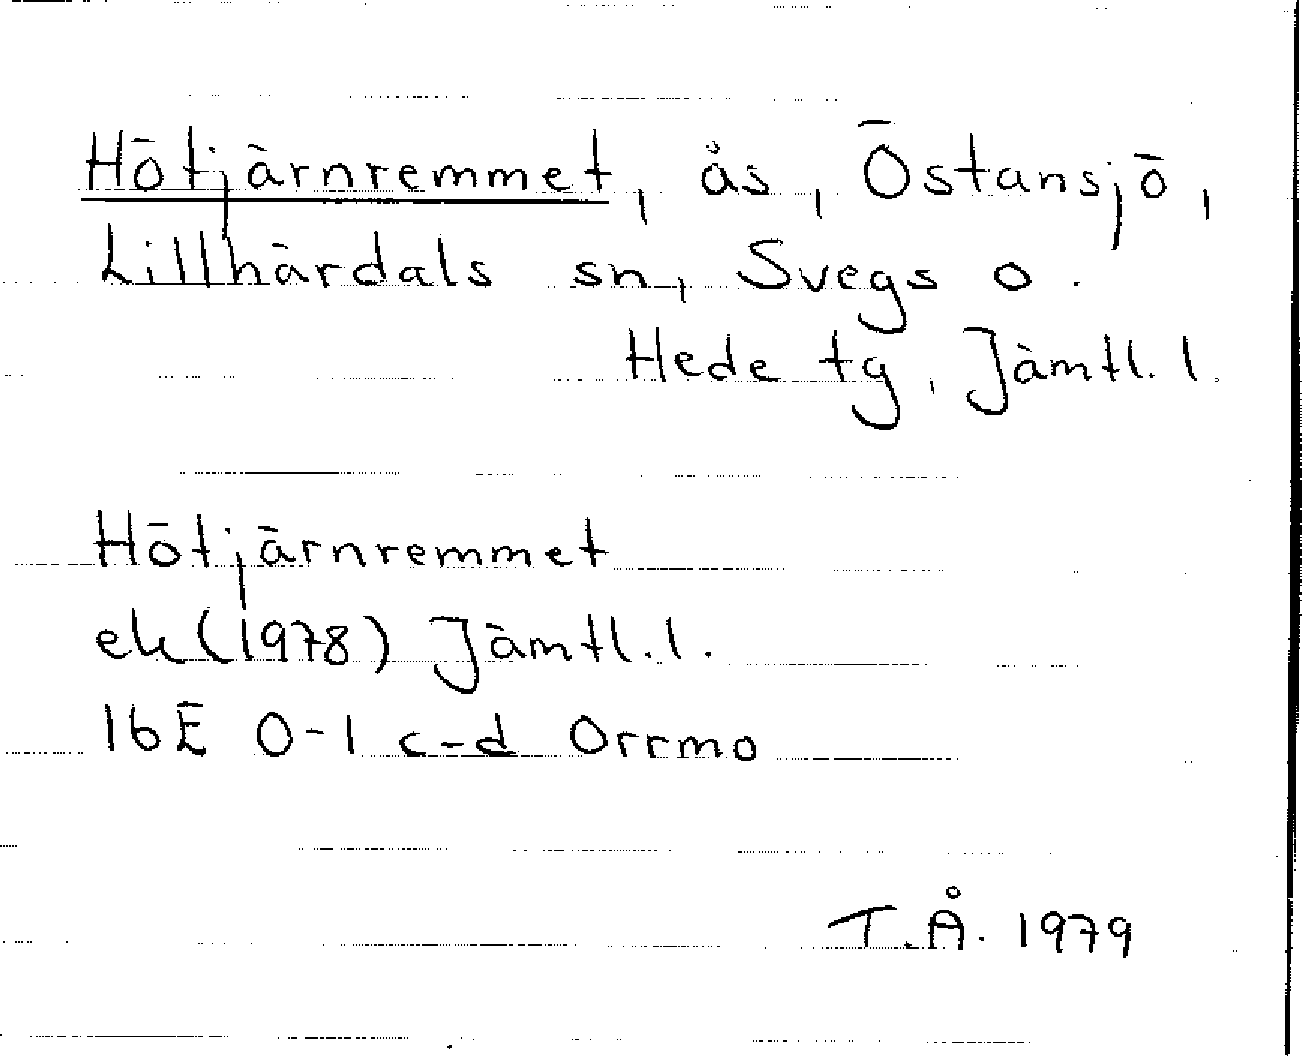 Hötjärnremmet, ås, Östansjö,
Lillhärdals sn, Svegs o.
Hede tg, Jämtl. l.
Hötjärnremmet
ek (1978) Jämtl. l.
16E 0-1 c-d Orrmo
T.Å. 1979